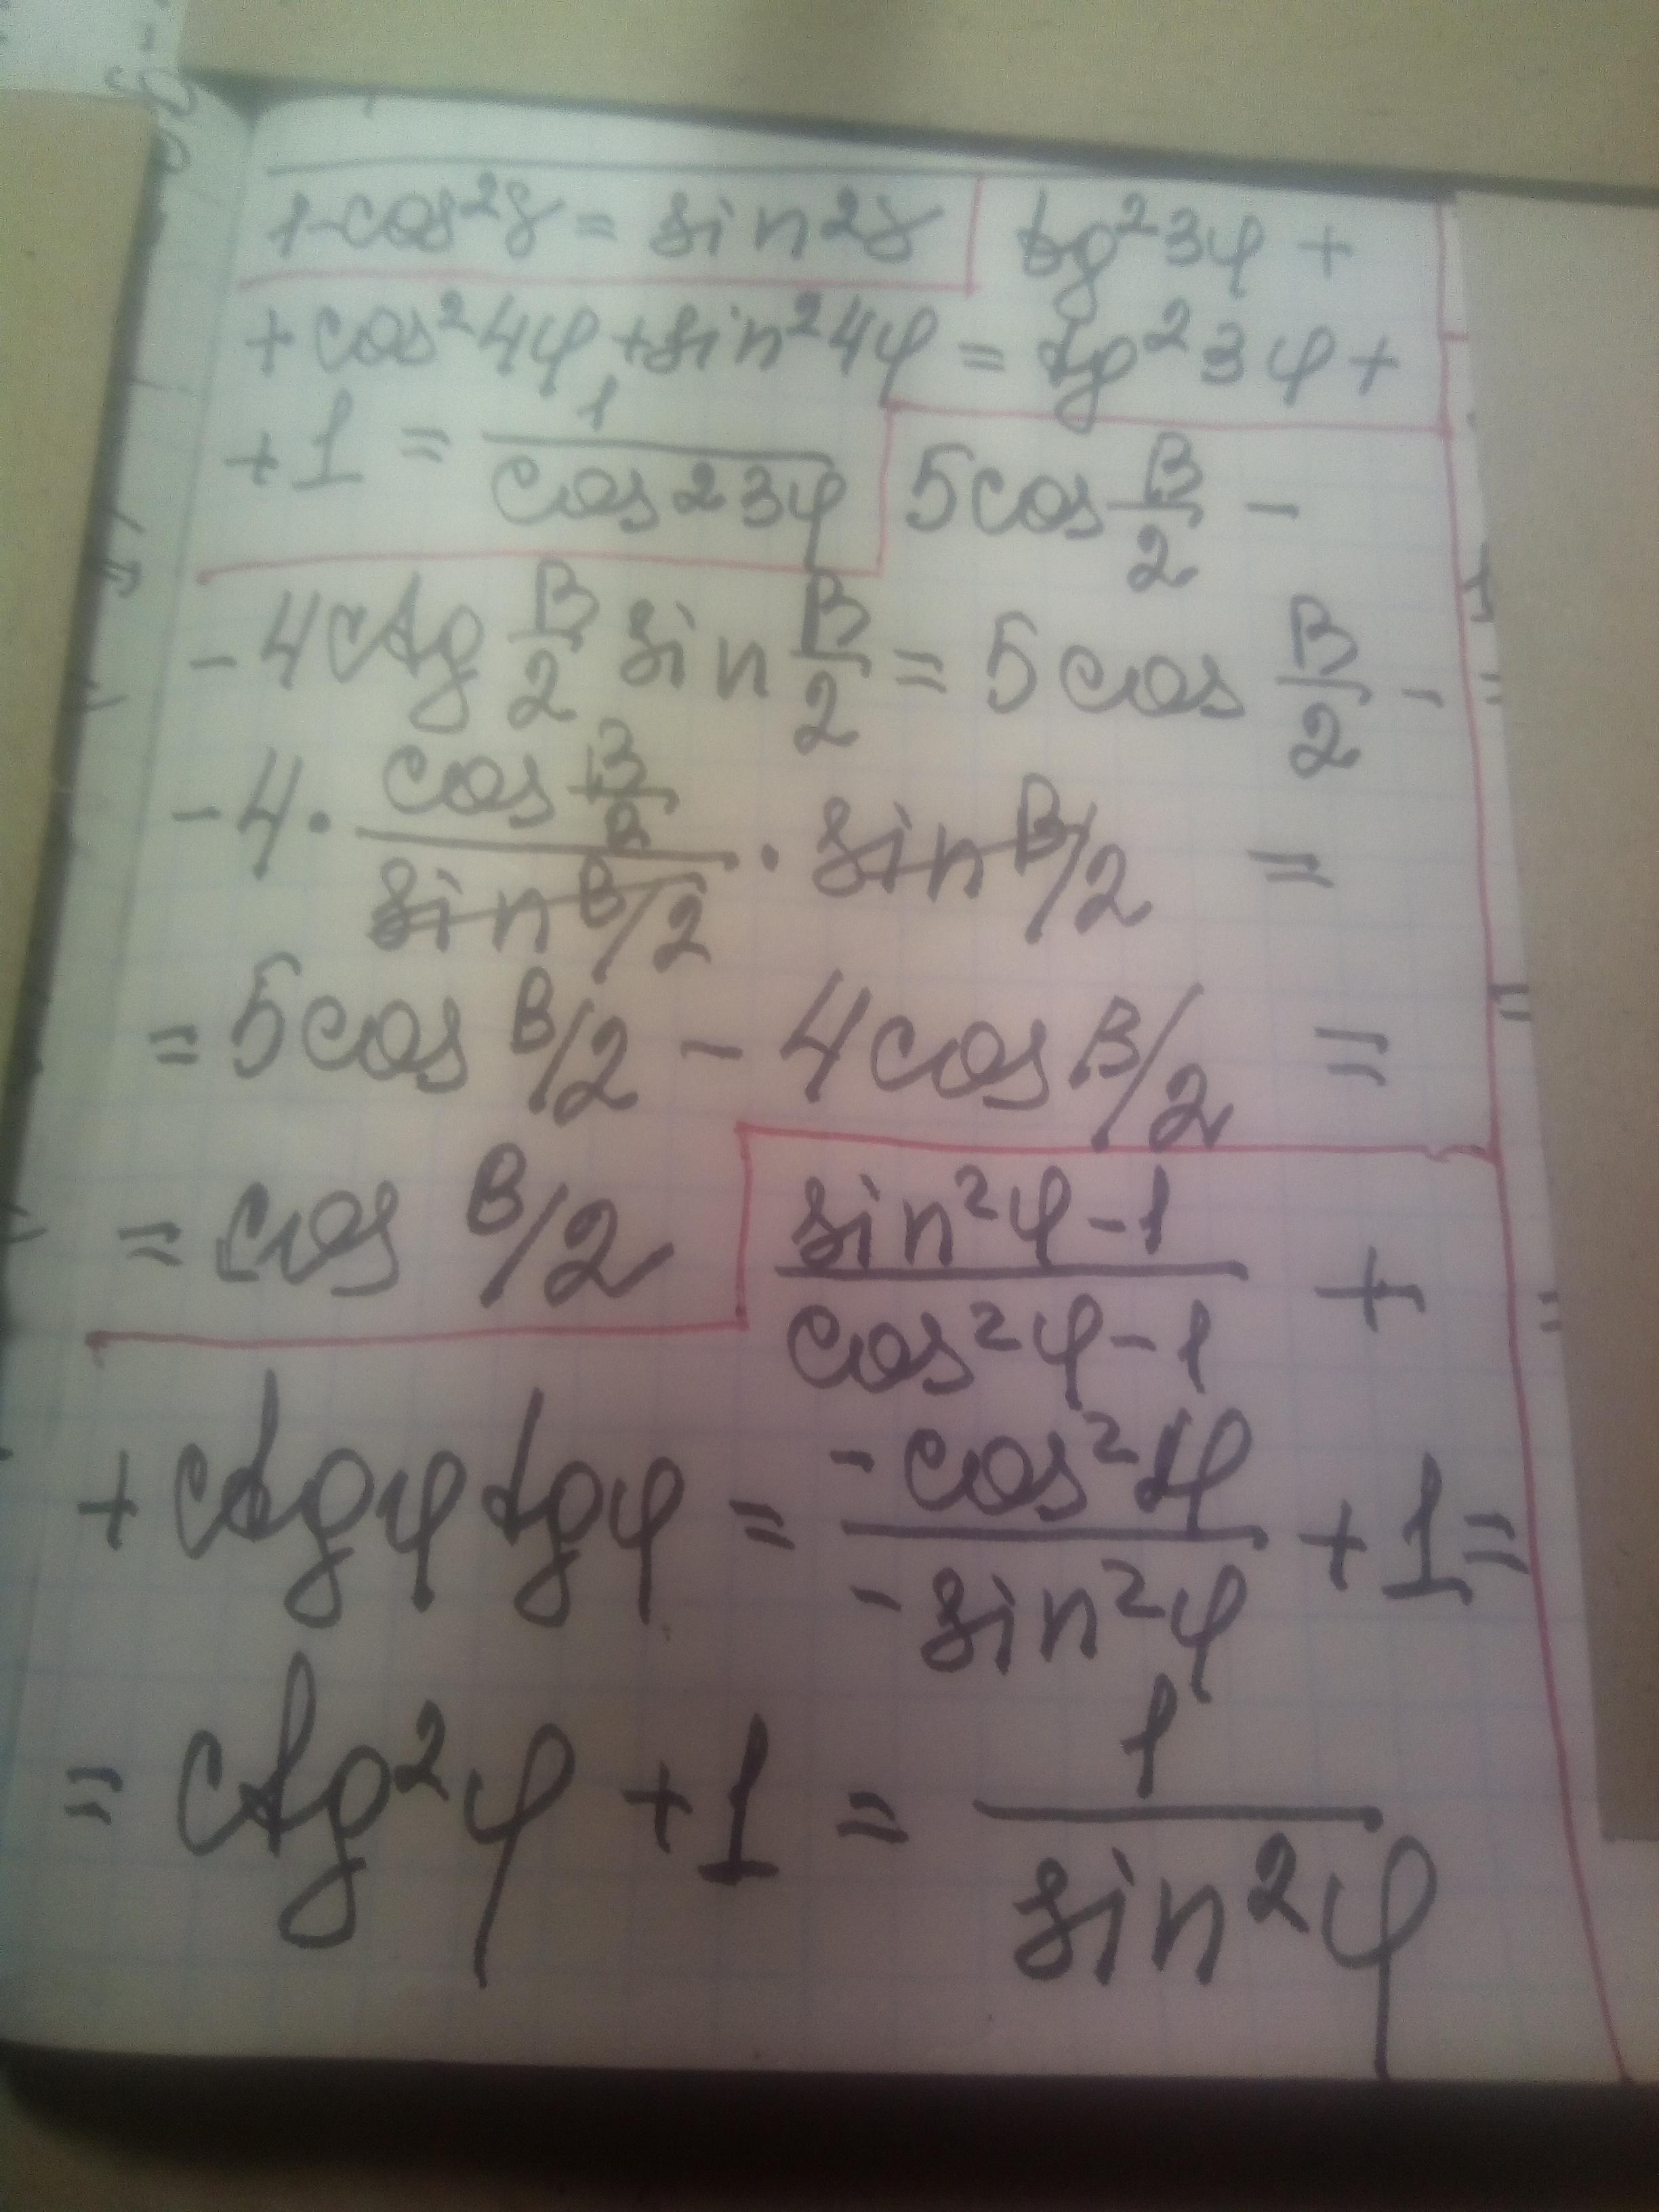 1-cos²γ = sin2γ tg²3φ +
+ cos²4φ + sin²4φ = tg²3φ +
+ 1 = 1/cos23φ 5cos β/2 -
- 4ctg β/2 sin β/2 = 5cos β/2 -
- 4 · cos β/2 / sin β/2 · sin β/2 =
= 5cos β/2 - 4cos β/2 =
= cos β/2 sin²φ-1 / cos²φ-1 +
+ ctgφ tgφ = -cos²φ / -sin²φ + 1 =
= ctg²φ + 1 = 1 / sin²φ